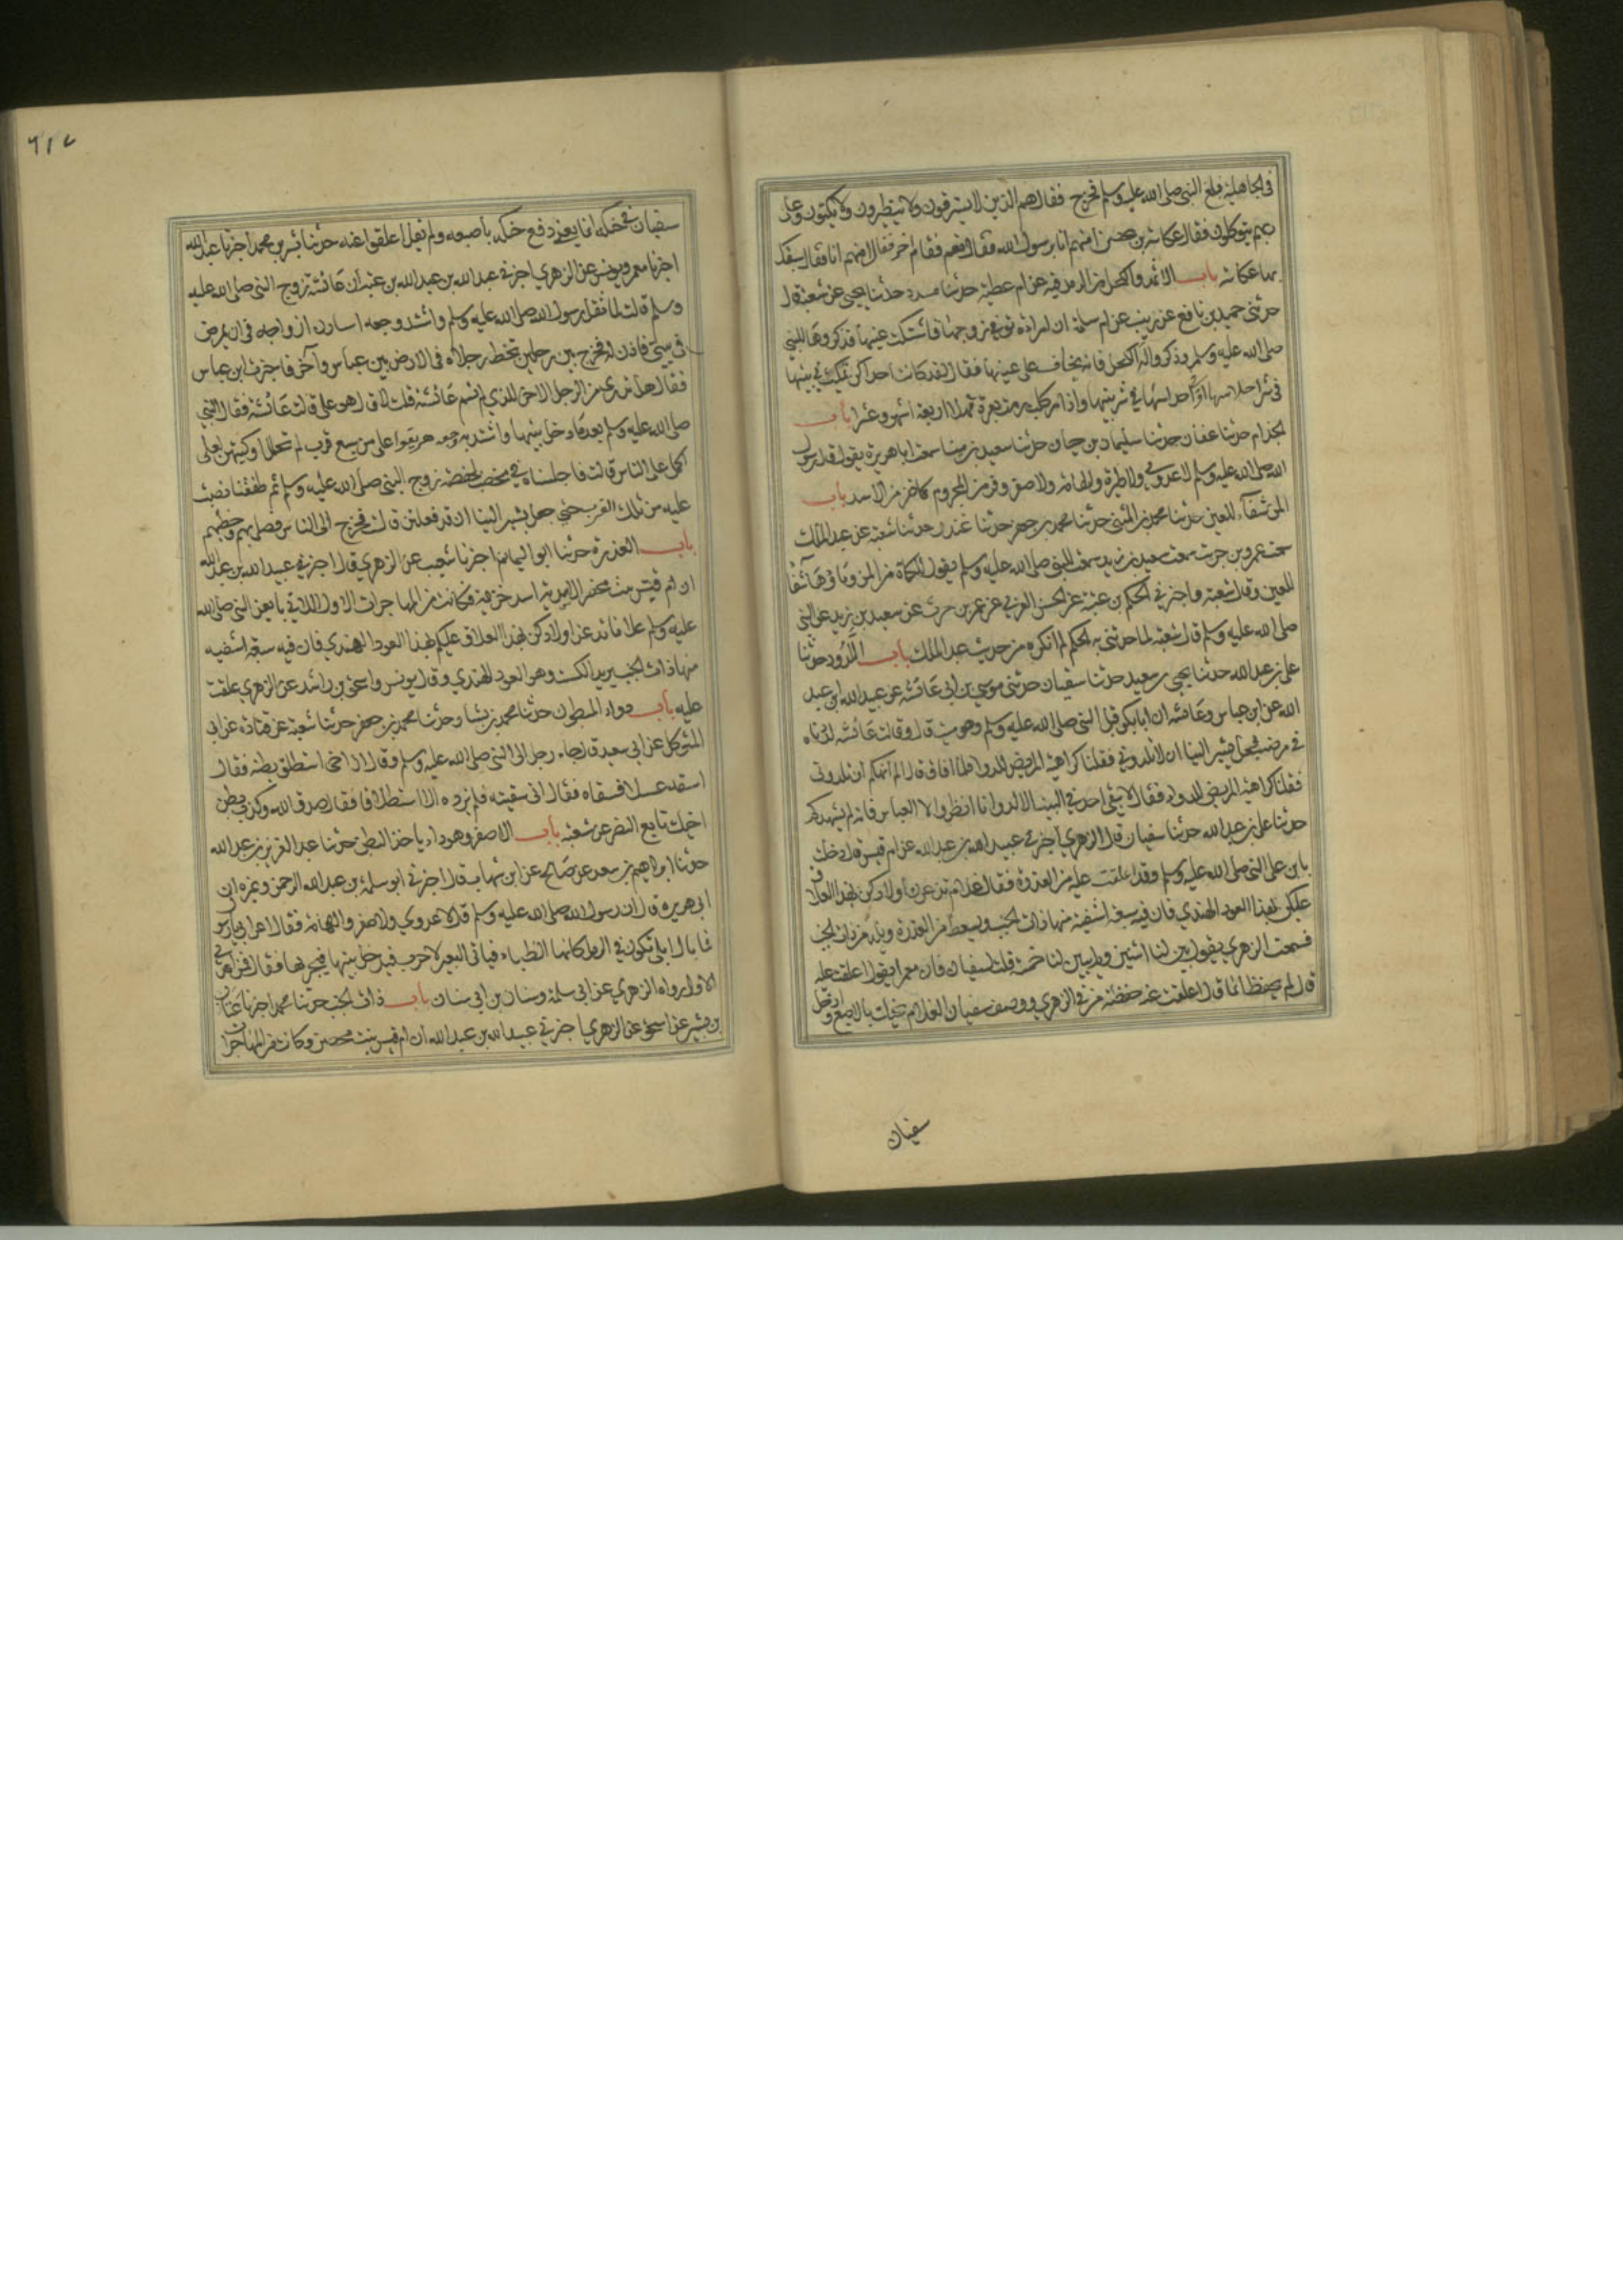 في الجاهلية فبلغ النبي صلى الله عليه وسلم فخرج فقال هم الذين لا يسترقون ولا يتطيرون ولا يكتوون وعلى
ربهم يتوكلون فقال عكاشة بن محصن امنهم انا يرسول الله فقال نعم فقام اخر فقال امنهم انا فقال سبقك
بها عكاشه باب الاثمد والكحل من الرمد فيه عن ام عطية حدثنا مسدد حدثنا يحيى عن شعبة قال
حدثني حميد بن نافع عن زينب عن ام سلمة ان امراة توفي زوجها فاشتكت عينها فذكروها للنبي
صلى الله عليه وسلم وذكروا له الكحل فانه يخاف على عينها فقال لقد كانت احداكن تمكث في بيتها
في شر احلاسها او في احلاسها في شر بيتها واذا مر كلب رمت بعرة فهلا اربعة اشهر وعشرا باب
الجذام حدثنا عفان حدثنا سليمان بن حيان حدثنا سعيد بن مينا سمعت ابا هريرة يقول قال رسول
الله صلى الله عليه وسلم لا عدوى ولا طيرة ولا هامه ولا صفر وفر من المجروم كما تفر من الاسد باب
المن شفآء للعين حدثنا محمد بن المثنى حدثنا محمد بن جعفر حدثنا غندر حدثنا شعبة عن عبد الملك
سمعت عمرو بن حريث سمعت سعيد بن زيد سمعت النبي صلى الله عليه وسلم يقول الكماة من المن وماؤها شفا
للعين وقال شعبة واخبرني الحكم بن عتبة عن الحسن العرني عن عمر بن حريث عن سعيد بن زيد عن النبي
صلى الله عليه وسلم قال شعبة لما حدثني به الحكم لم انكره من حديث عبد الملك باب اللدود حدثنا
علي بن عبد الله حدثنا يحيى بن سعيد حدثنا سفيان حدثني موسى بن ابي عائشة عن عبيد الله ابن عبد
الله عن ابن عباس وعائشه ان ابا بكر قبل النبي صلى الله عليه وسلم وهو ميت قال وقالت عائشه لددناه
في مرضه فجعل يشير الينا ان لا تلدوني فقلنا كراهية المريض للدوا فلما افاق قال الم انهكم ان تلدوني
فقلنا كراهية المريض للدواء فقال لا يبقى احد في البيت الا لد وانا انظر الا العباس فانه لم يشهدكم
حدثنا علي بن عبد الله حدثنا سفيان قال الزهري اخبرني عبيد الله بن عبد الله عن ام قيس قال دخلت
بابن على النبي صلى الله عليه وسلم وقد اعلقت عليه من العذرة فقال علام تدغرن اولادكن بهذا العلاق
عليكن بهذا العود الهندي فان فيه سبعة اشفية منها ذات الجنب ويسعط من العذرة ويلد من ذات الجنب
فسمعت الزهري يقول بين لنا اثنين ولم يبين لنا خمسة قلت لسفيان فان معمرا يقول اعلقت عليه
قال لم يحفظ انما قال اعلقت عنه حفظته من في الزهري ووصف سفيان الغلام يحنك بالاصبع وادخل
سفيان
٦١٧
سفيان في حنكه انما يعني دفع حنكه باصبعه ولم يقل اعلقوا عنه حدثنا بشر بن محمد اخبرنا عبد الله
اخبرنا معمر ويونس عن الزهري اخبرني عبد الله بن عبد الله بن عتبة ان عائشة زوج النبي صلى الله عليه
وسلم قالت لما ثقل رسول الله صلى الله عليه وسلم واشتد وجعه استاذن ازواجه في ان يمرض
في بيتي فاذن له فخرج بين رجلين تخط رجلاه في الارض بين عباس وآخر فاخبرت ابن عباس
فقال هل تدري من الرجل الاخر الذي لم تسم عائشة قلت لا قال هو علي قالت عائشة فقال النبي
صلى الله عليه وسلم بعد ما دخل بيتها واشتد به وجعه هريقوا علي من سبع قرب لم تحلل اوكيتهن لعلي
اعهد الى الناس قالت فاجلسناه في مخضب لحفصة زوج النبي صلى الله عليه وسلم ثم طفقنا نصب
عليه من تلك القرب حتي جعل يشير الينا ان قد فعلتن قالت فخرج الى الناس فصلى بهم وخطبهم
باب العذرة حدثنا ابو اليمان اخبرنا شعيب عن الزهري قال اخبرني عبيد الله بن عبد الله
ان ام قيس بنت محصن الاسدية اسد خزيمة فكانت من المهاجرات الاول اللاتي بايعن النبي صلى الله
عليه وسلم علا ما تدغرن اولادكن بهذا العلاق عليكم بهذا العود الهندي فان فيه سبعة اشفيه
منها ذات الجنب يريد الكست وهو العود الهندي وقال يونس واسحق بن راشد عن الزهري علقت
عليه باب دواء المبطون حدثنا محمد بن بشار حدثنا محمد بن جعفر حدثنا شعبة عن قتادة عن ابي
المتوكل عن ابي سعيد قال جاء رجل الى النبي صلى الله عليه وسلم وقال ان اخي استطلق بطنه فقال
اسقه عسلا فسقاه فقال اني سقيته فلم يزده الا استطلاقا فقال صدق الله وكذب بطن
اخيك تابع النضر عن شعبة باب الاصفر وهو داء ياخذ البطن حدثنا عبد العزيز بن عبد الله
حدثنا ابراهيم بن سعد عن صالح عن ابن شهاب قال اخبرني ابو سلمة بن عبد الله الرحمن وغيره ان
ابي هريره قال ان رسول الله صلى الله عليه وسلم قال لا عدوي ولا صفر ولا هامة فقال اعرابي يا رسول
فما بال ابلي تكون في الرمل كانها الظباء فياتي البعير الاجرب فيدخل بينها فيجربها فقال فمن اعدى
الاول رواه الزهري عن ابي سلمة وسنان بن ابي سنان باب ذات الجنب حدثنا محمد اخبرنا عتاب
بن بشير عن اسحق عن الزهري اخبرني عبيد الله بن عبد الله ان ام قيس بنت محصن وكانت من المهاجرات